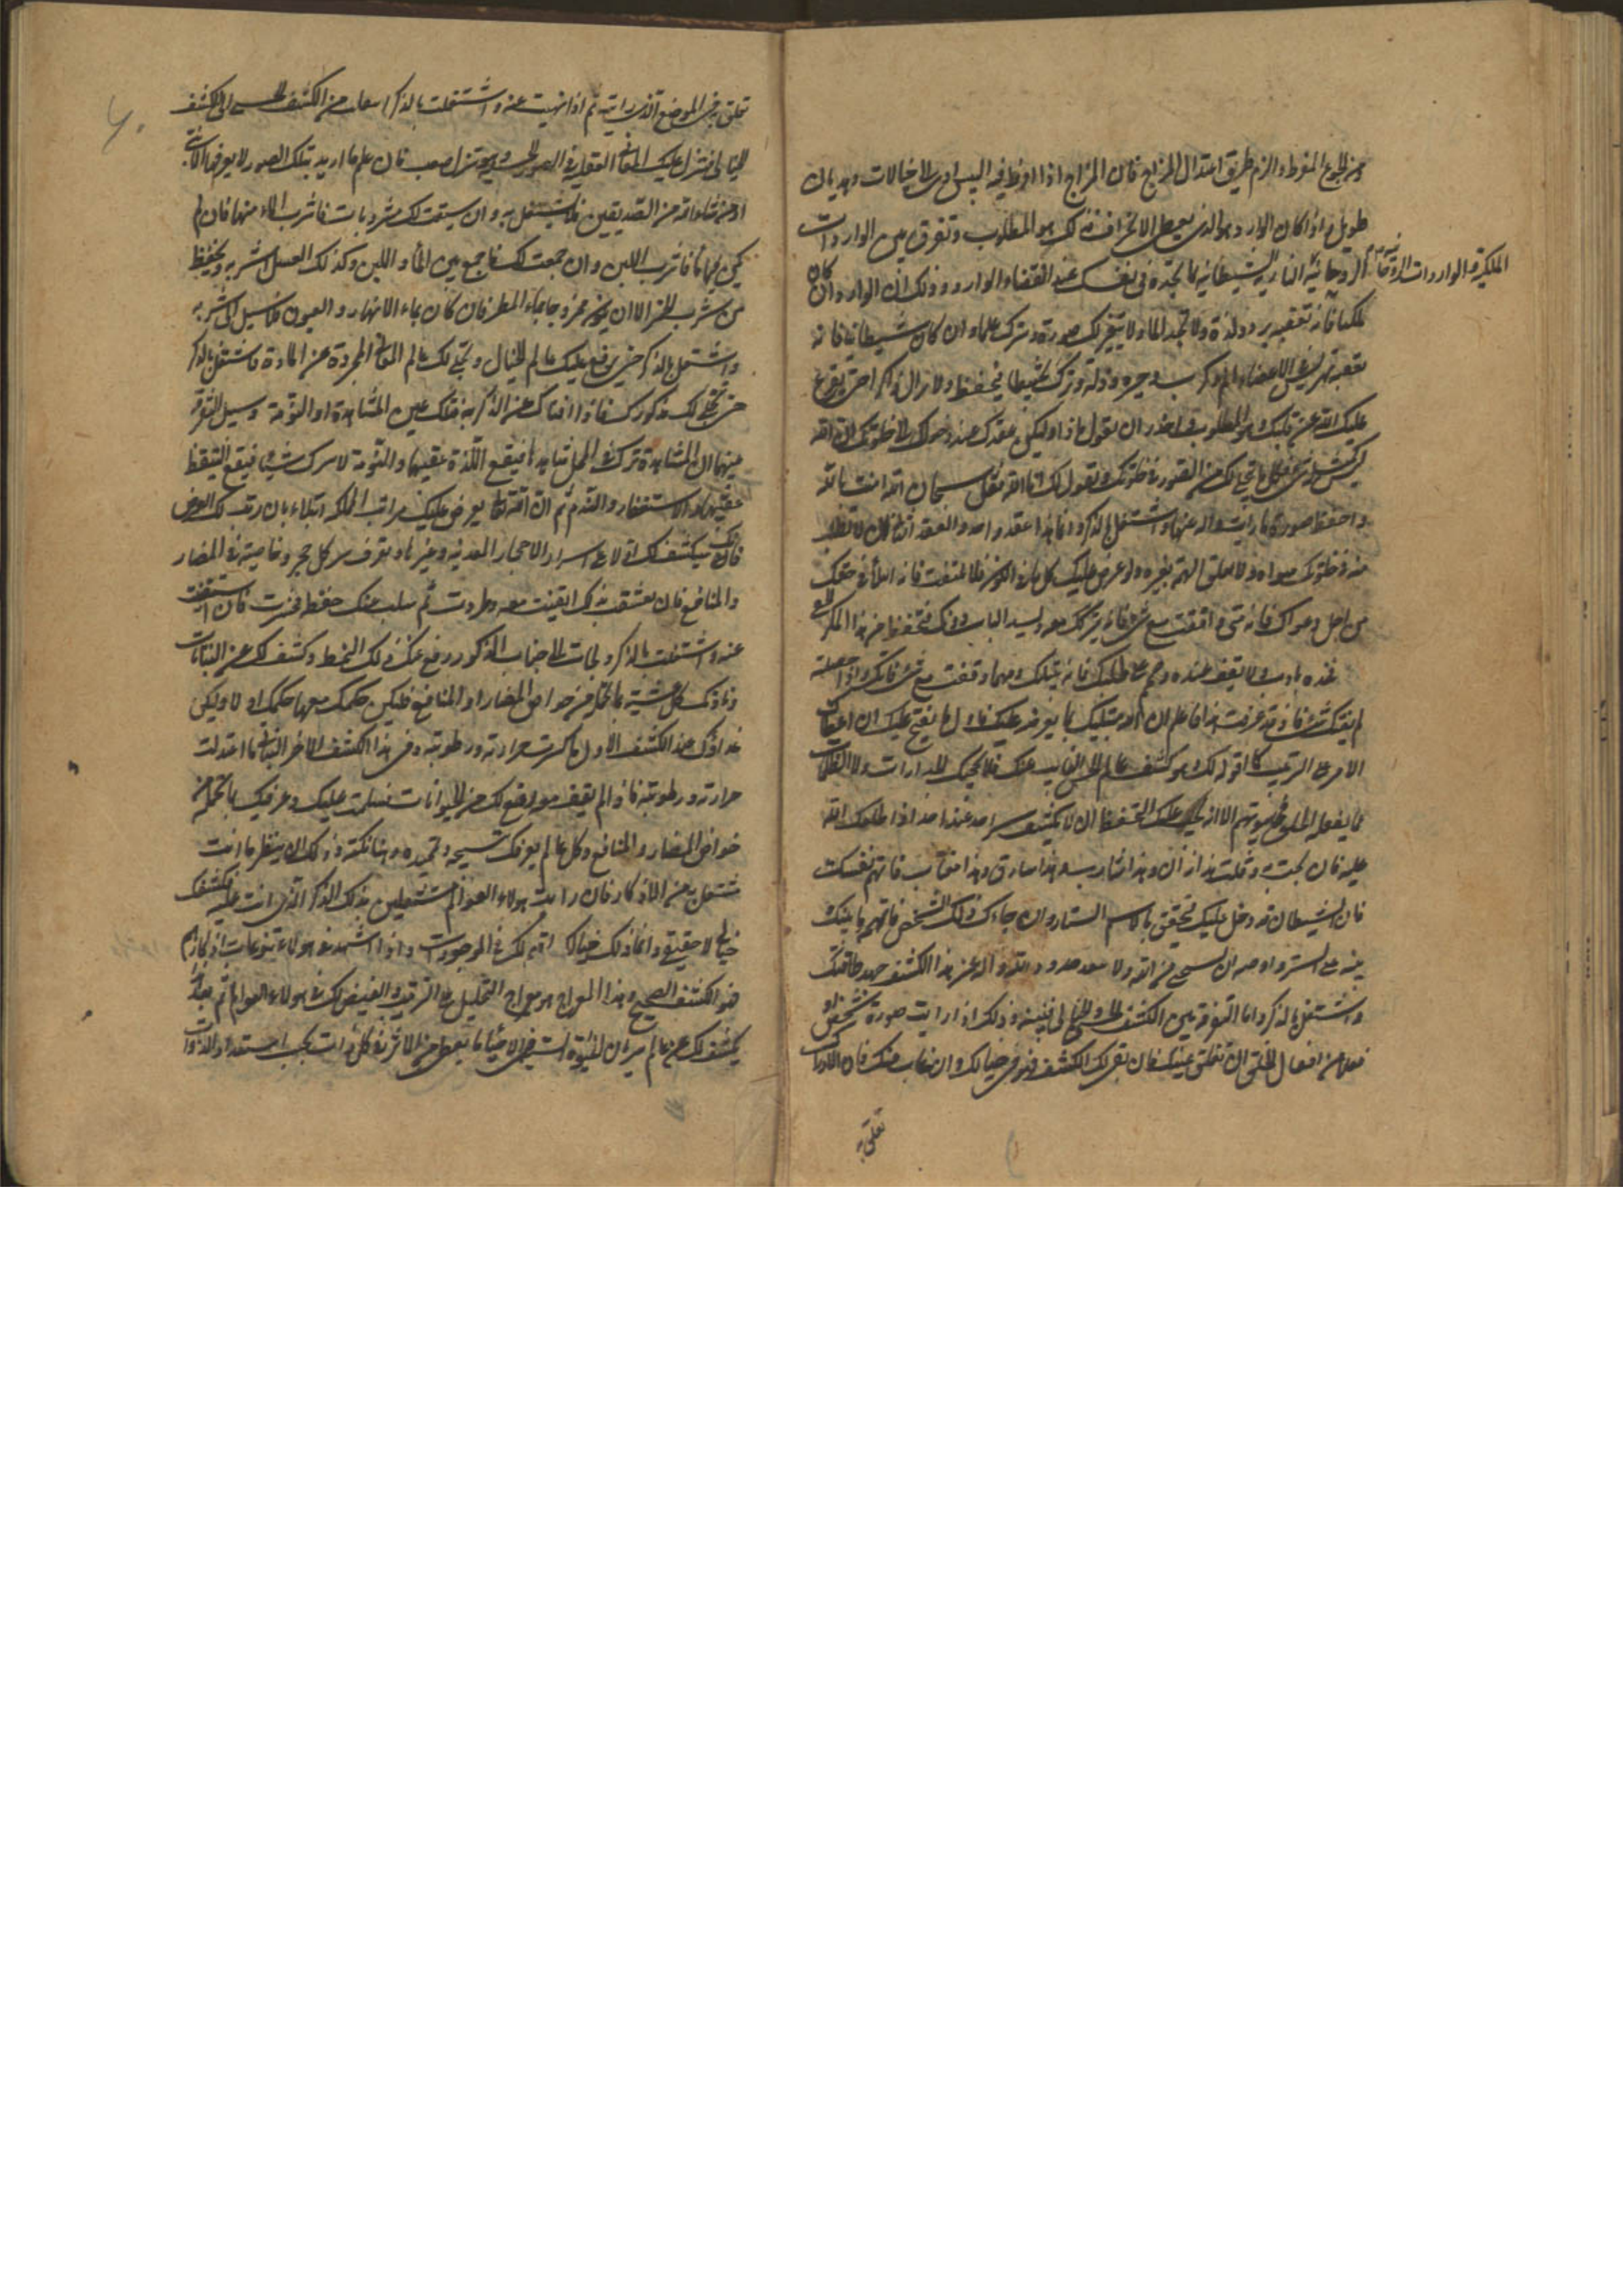 ومن الجوع المفرط والزم طريق اعتدال المزاج فان المزاج اذا افرط فيه اليبس ادى الى خيالات وهذيان
طويل واذا كان الوارد هو الذي يعطي الانحراف فذلك هو المطلوب وتفرق بين الواردات
الملكية والواردات الروحانية النارية الشيطانية بما تجده في نفسك عند انقضاء الوارد وذلك ان الوارد ان كان
ملكيا فانه تعقبه برد ولذة ولا تجد الما ولا يتغير لك صورة وترك علما وان كان شيطانيا فانه
تعقبه تهريس في الاعضاء والم وكرب وحيرة وذلة وترك تخبيطا فتحفظ ولا تزال ذاكرا حتى يفرغ
الله عن قلبك وهو المطلوب واحذر ان تقول ماذا وليكن عقدك عند دخولك الى خلوتك ان الله
ليس كمثله شيء فكل ما تجلى لك من الصور في خلوتك ويقول لك انا الله فقل سبحان الله انت بالله
واحفظ صورة ما رايت واله عنها واشتغل بالذكر دائما هذا عقد واحد والعقد الثاني ان لا تطلب
منه في خلوتك سواه ولا تعلق الهمة بغيره ولو عرض عليك كل ما في الكون
فخذه بادب ولا تقف عنده وصمم على طلبك فانه يبتليك ومهما وقفت مع شيء فاتك واذا حصلته
لم يفتك شيء فاذا وقد عرفت هذا فاعلم ان الله مبتليك بما يعرضه عليك فاول ما يفتح عليك ان اعطاك
الامر على الترتيب كما اقول لك وهو كشف عالم الحس الغايب عنك فلا يحجبك الجدارات ولا الظلمات
عما يفعله الخلق في بيوتهم الا انه يجب عليك التحفظ ان لا تكشف سر احد عند احد اذا اطلعك الله
عليه فان بحت وقلت هذا زان وهذا شارب وهذا سارق وهذا مغتاب فاتهم نفسك
فان الشيطان قد دخل عليك فتحقق بالاسم الستار وان جاءك ذلك الشخص فانهه بما بينك
وبينه على الستر واوصه ان يستحي من الله ولا يتعد حدود الله واله عن هذا الكشف جهد طاقتك
واشتغل بالذكر واما التفرقة بين الكشف الحسي والخيالي فنبينه وذلك اذا رايت صورة شخص او
فعلا من افعال الخلق ان تغلق عينيك فان بقي لك الكشف فهو في خيالك وان غاب عنك فان الادراك
تعلق به
تعلق به في الموضع الذي رايته ثم اذا لهيت عنه واشتغلت بالذكر انتقلت من الكشف الحسي الى الكشف
الخيالي فتنزل عليك المعاني العقلية في الصور الحسية وهو تنزل صعب فان علم ما اريد بتلك الصور لا يعرفها الا نبي
او من شاء الله من الصديقين فلا تشتغل به وان سيقت لك مشروبات فاشرب الماء منها فان لم
يكن فيها ماء فاشرب اللبن وان جمعت لك فاجمع بين الماء واللبن وكذلك العسل اشربه وتحفظ
من شرب الخمر الا ان يكون ممزوجا بماء المطر فان كان بماء الانهار والعيون فلا سبيل الى شربه
واشتغل بالذكر حتى يرفع عليك عالم الخيال وتجلى لك عالم المعاني المجردة عن المادة فاشتغل بالذكر
حتى تجلى لك مذكورك فاذا افناك عن الذكر به فتلك عين المشاهدة او النومة وسبيل التفرقة
بينهما ان المشاهدة تترك في المحل شاهدا فيقع اللذة عقيبها والنومة لا تترك شيئا فيقع التيقظ
عقيبها والاستغفار والندم ثم ان الله تعالى يعرض عليك مراتب المملكة ابتلاء بان رتب لك العرض
فانك سيكشف لك اولا على اسرار الاحجار المعدنية وغيرها وتعرف سر كل حجر وخاصيته في المضار
والمنافع فان تعشقت به بقيت معه وطردت ثم سلب عنك حفظه فخسرت فان استغنيت
عنه واشتغلت بالذكر ولجات الى جناب المذكور رفع عنك ذلك النمط وكشف لك عن النباتات
ونادتك كل عشبة بما تحمله من خواص المضار والمنافع فليكن حكمك معها حكمك اولا وليكن
غذاؤك عند الكشف الاول ما كثرت حرارته ورطوبته وفي هذا الكشف الاخر النباتي ما اعتدلت
حرارته ورطوبته فاذا لم تقف معه رفع لك عن الحيوانات فسلمت عليك وعرفتك بما تحمله من
خواص المضار والمنافع وكل عالم يعرفك تسبيحه وتمجيده وهنا نكتة وذلك ان ينظر ما انت
مشتغل به من الاذكار فان رايت هولاء العوالم مشتغلين بذلك الذكر الذي انت عليه فكشفك
خيالي لا حقيقي وانما ذلك خيالك اقيم لك في الموجودات واذا شهدت في هولاء تنوعات اذكارهم
فهو الكشف الصحيح وهذا المعراج هو معراج التحليل على الترتيب والقبض لك في هولاء العوالم ثم بعد هذا
يكشف لك عن عالم سريان الحيوة السببية في الاحياء وما تعطي من الاثر في كل ذات بحسب استعداد الذوات